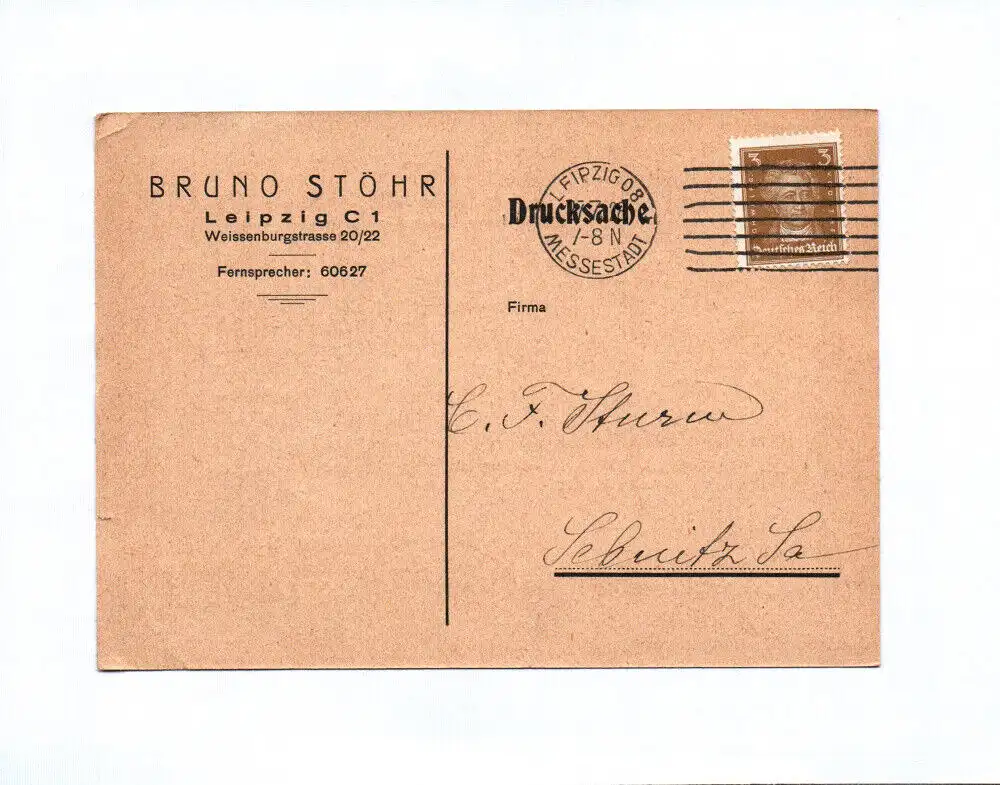 BRUNO STÖHR
Leipzig C 1
Weissenburgstrasse 20/22
Fernsprecher: 60627
LEIPZIG 08
Drucksache.
7-8 N
MESSESTADT
3 3
Deutsches Reich
Firma
C. F. Sturm
Sebnitz Sa